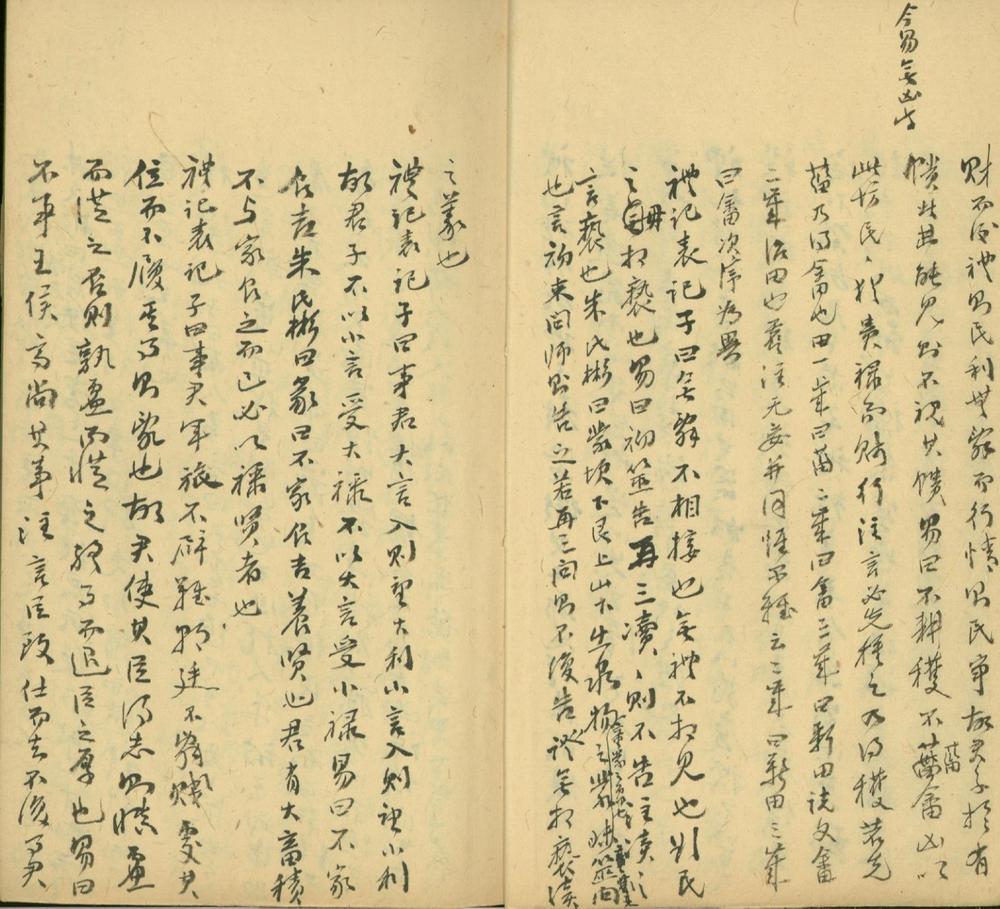 今易無凶字
財不行禮則民利無辭而行情則民爭故君子於有
饋者弗能見則不視其饋易曰不耕穫不菑畬凶以
此坊民民猶貴祿而賤行注言必先種之乃得穫若先
菑乃得畬也田一歲曰菑二歲曰畬三歲曰新田說文畬
二歲治田也 注无妄并同惟 云二歲曰新田三歲
曰畬次序為異
禮記表記子曰無辭不相接也無禮不相見也欲民
之毋相褻也易曰初筮告再三瀆瀆則不告注瀆之
言褻也朱氏彬曰蒙坎下艮上山下出泉物之蒙 筮問
也言初來問師則告之若再三問則不復告 無相褻瀆
之義也
禮記表記子曰事君大言入則望大利小言入則望小利
故君子不以小言受大祿不以大言受小祿易曰不家
食吉朱氏彬曰彖曰不家食吉養賢也君有大畜積
不與家食之而已必以祿賢者也
禮記表記子曰事君軍旅不辟難朝廷不辭賤處其
位而不履其事則亂也故君使其臣得志則慎慮
而從之否則孰慮而從之終事而退臣之厚也易曰
不事王侯高尚其事注言臣致仕而去不復事君